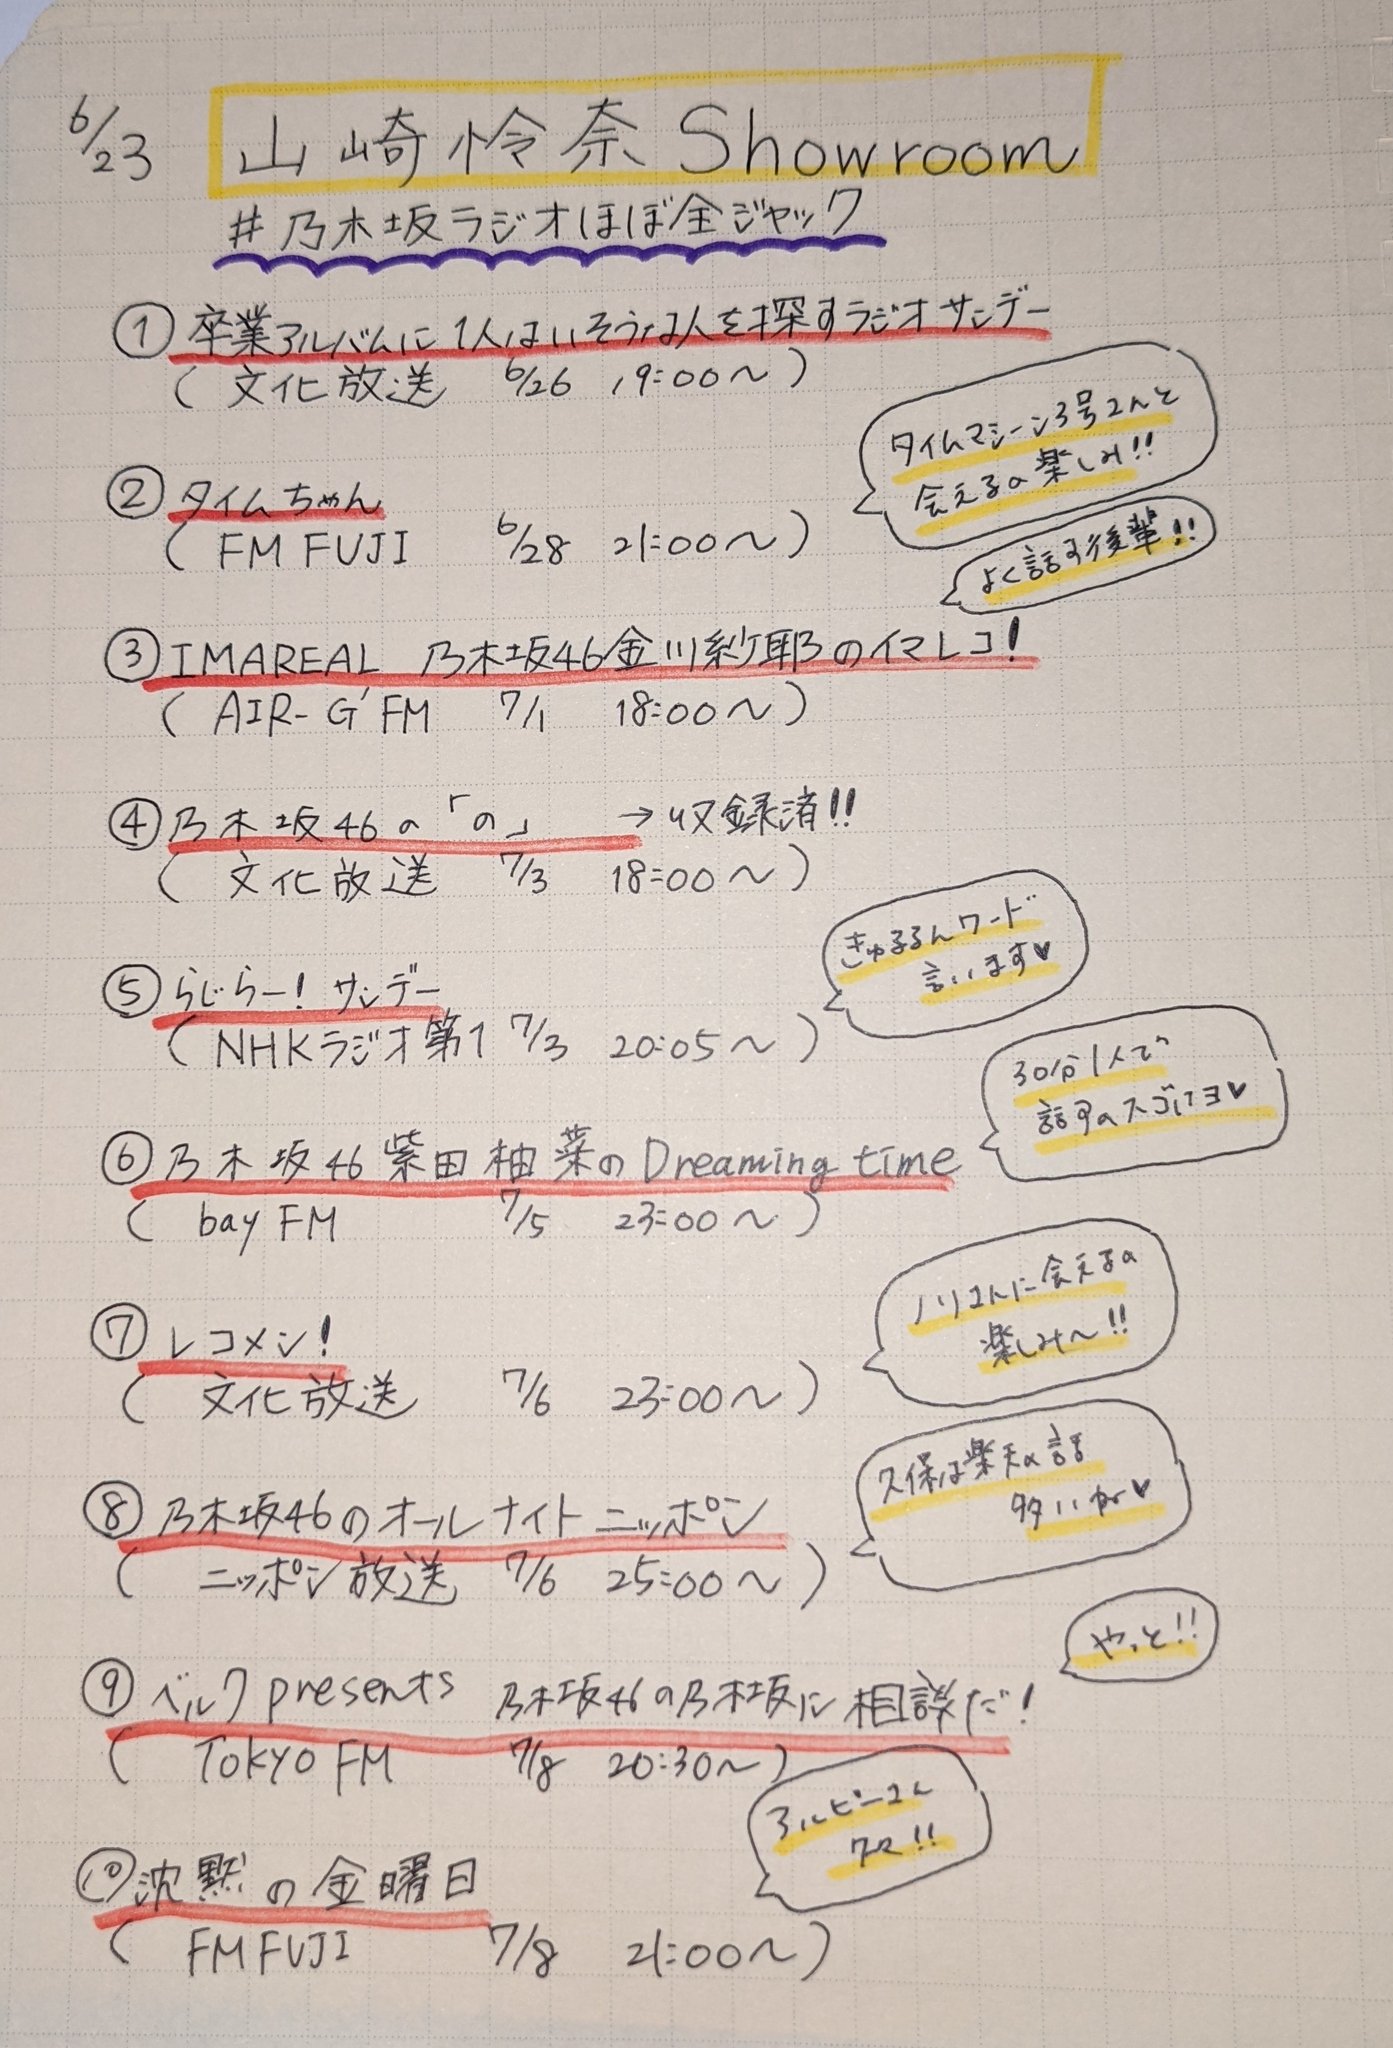 6/23 山崎怜奈 Showroom
#乃木坂ラジオほぼ全ジャック
① 卒業アルバムに1人はいそうな人を探すラジオサンデー
( 文化放送 6/26 19:00〜 )
タイムマシーン3号さんと
会えるの楽しみ!!
② タイムちゃん
( FM FUJI 6/28 21:00〜 )
よく話す後輩!!
③ IMAREAL 乃木坂46金川紗耶のイマレコ!
( AIR-G' FM 7/1 18:00〜 )
④ 乃木坂46の「の」 → 収録済!!
( 文化放送 7/3 18:00〜 )
きゅるるんワード
言います♥
⑤ らじらー! サンデー
( NHKラジオ第1 7/3 20:05〜 )
30分1人で
話すのスゴいヨ♥
⑥ 乃木坂46 柴田柚菜の Dreaming time
( bay FM 7/5 23:00〜 )
ノリさんに会えるの
楽しみ〜!!
⑦ レコメン!
( 文化放送 7/6 23:00〜 )
久保は楽天の話
多いかな♥
⑧ 乃木坂46のオールナイトニッポン
( ニッポン放送 7/6 25:00〜 )
やっと!!
⑨ ベルク presents 乃木坂46の乃木坂に相談だ!
( TOKYO FM 7/8 20:30〜 )
アルピーさん
⑩ 沈黙の金曜日
( FM FUJI 7/8 21:00〜 )